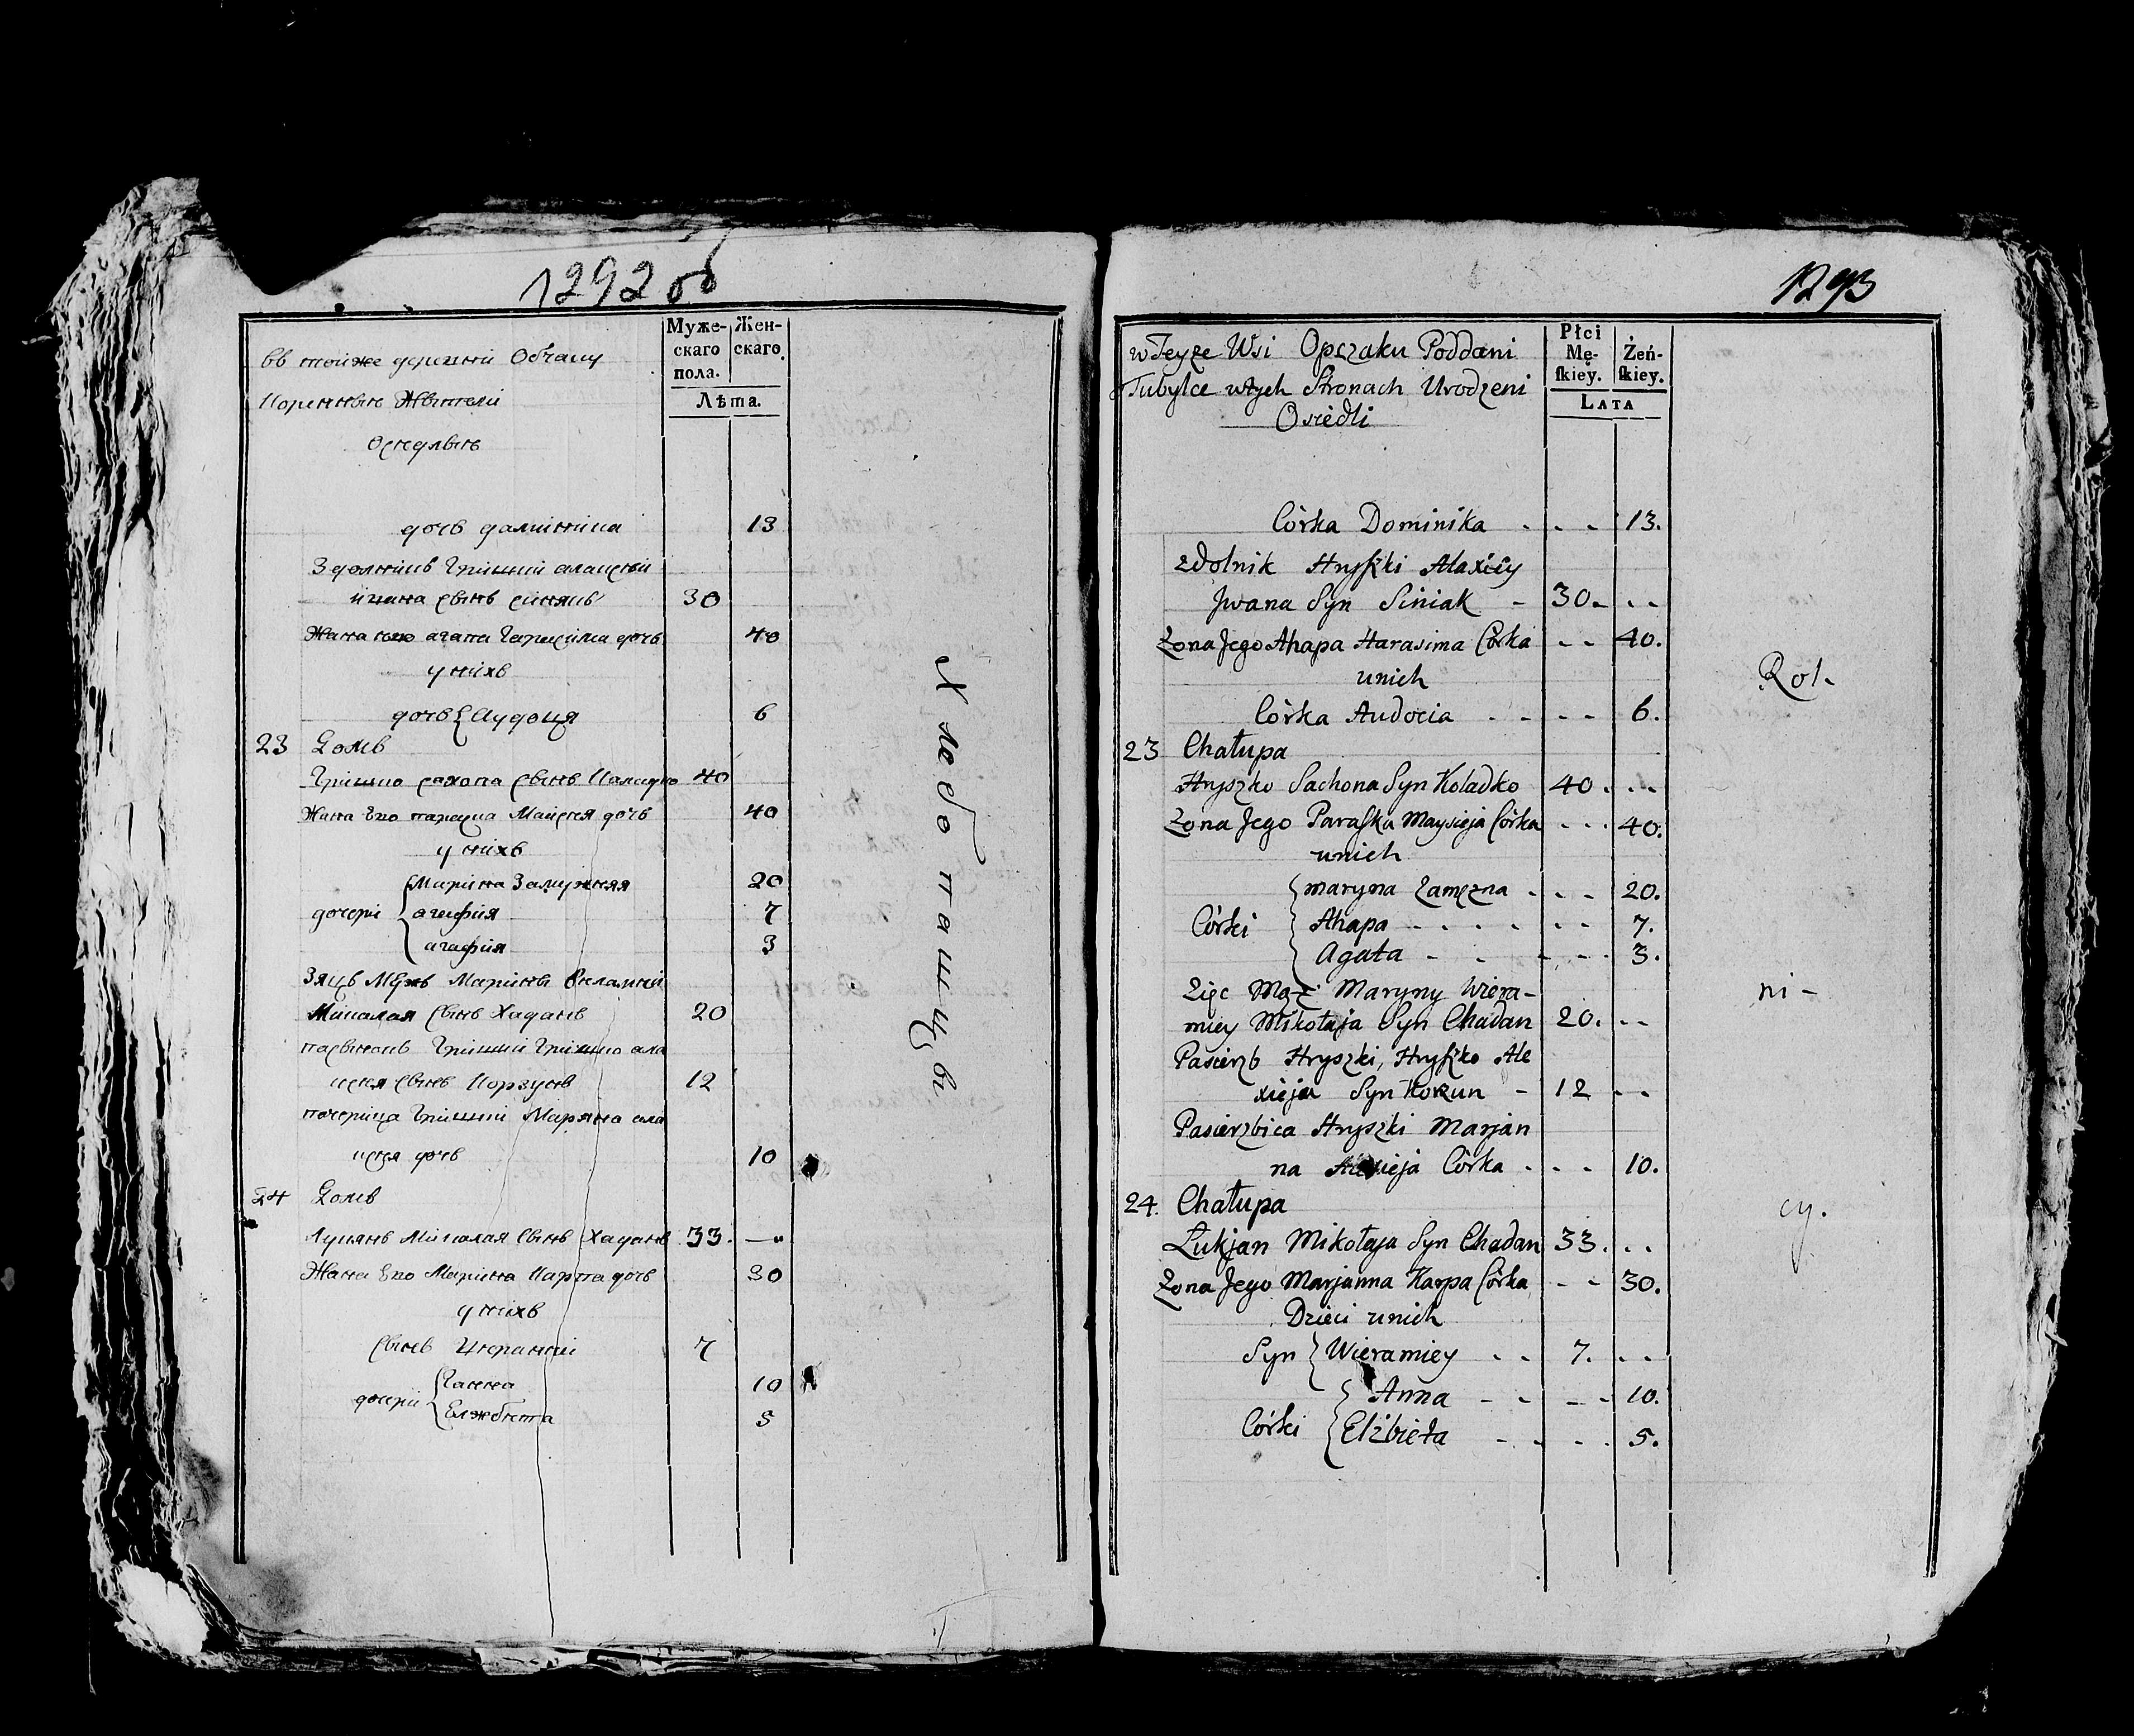 1292об
Муже-
скаго
пола.
Жен-
скаго.
Лѣта.
въ тойже деревни Обчаку
Коренные Жыттели
Оседлые
дочь даминика 13
Здолникъ Гришки алаксеи
ивана сынъ синякъ 30
Жана агапа Гарасима дочь 40
у нихъ
дочь Аудоця 6
23 Домъ
Гришко сахона сынъ Каладко 40
Жана Его параска Майсея дочь 40
у нихъ
Марина Замужняя 20
дочери агафия 7
агафия 3
Зяць Мужъ Марины
Миколая сынъ Хаданъ 20
пасынокъ Гришки Гришко ала
ксея сынъ Корзунъ 12
почерица Гришки Маряна ала
ксея дочь 10
24 Домъ
Лукянъ Миколая сынъ Хаданъ 33.
Жана Его Марина Карпа дочь 30
у нихъ
сынъ 7
Ганна 10
дочери Елжбета 5
Хлебопашцы
1293
Płci
Mę-
ſkiey.
Żeń-
ſkiey.
LATA
w Teyże Wsi Opczaku Poddani
Tubylce w tych Stronach Urodzeni
Osiedli
Córka Dominika - - - 13.
zdolnik Hryſzki Alaxiey
Jwana Syn Siniak - 30 - - -
Żona Jego Ahapa Harasima Córka - - 40.
unich
Córka Audocia - - - - 6.
23 Chałupa
Hryszko Sachona Syn Koladko 40 . - -
Żona Jego Paraſka Maysieja Córka - - - 40.
unich
Maryna Zamężna - - - 20.
Córki Ahapa - - - - - - 7.
Agata - - - - - 3.
Zięc Mąż Maryny Wiera-
miey Mikołaja Syn Chadan 20. - -
Pasierzb Hryszki, Hryſzko Ale
xieja Syn Korzun - 12 - -
Pasierzbica Hryszki Marjan
na Alexieja Córka - - - 10.
24. Chałupa
Łukjan Mikołaja Syn Chadan 33. - -
Żona Jego Marjanna Karpa Córka - - 30.
Dzieci unich
Syn Wieramiey - - 7. - -
Anna - - - - 10.
Córki Elżbieta - - - - 5.
Rol-
ni-
cy.